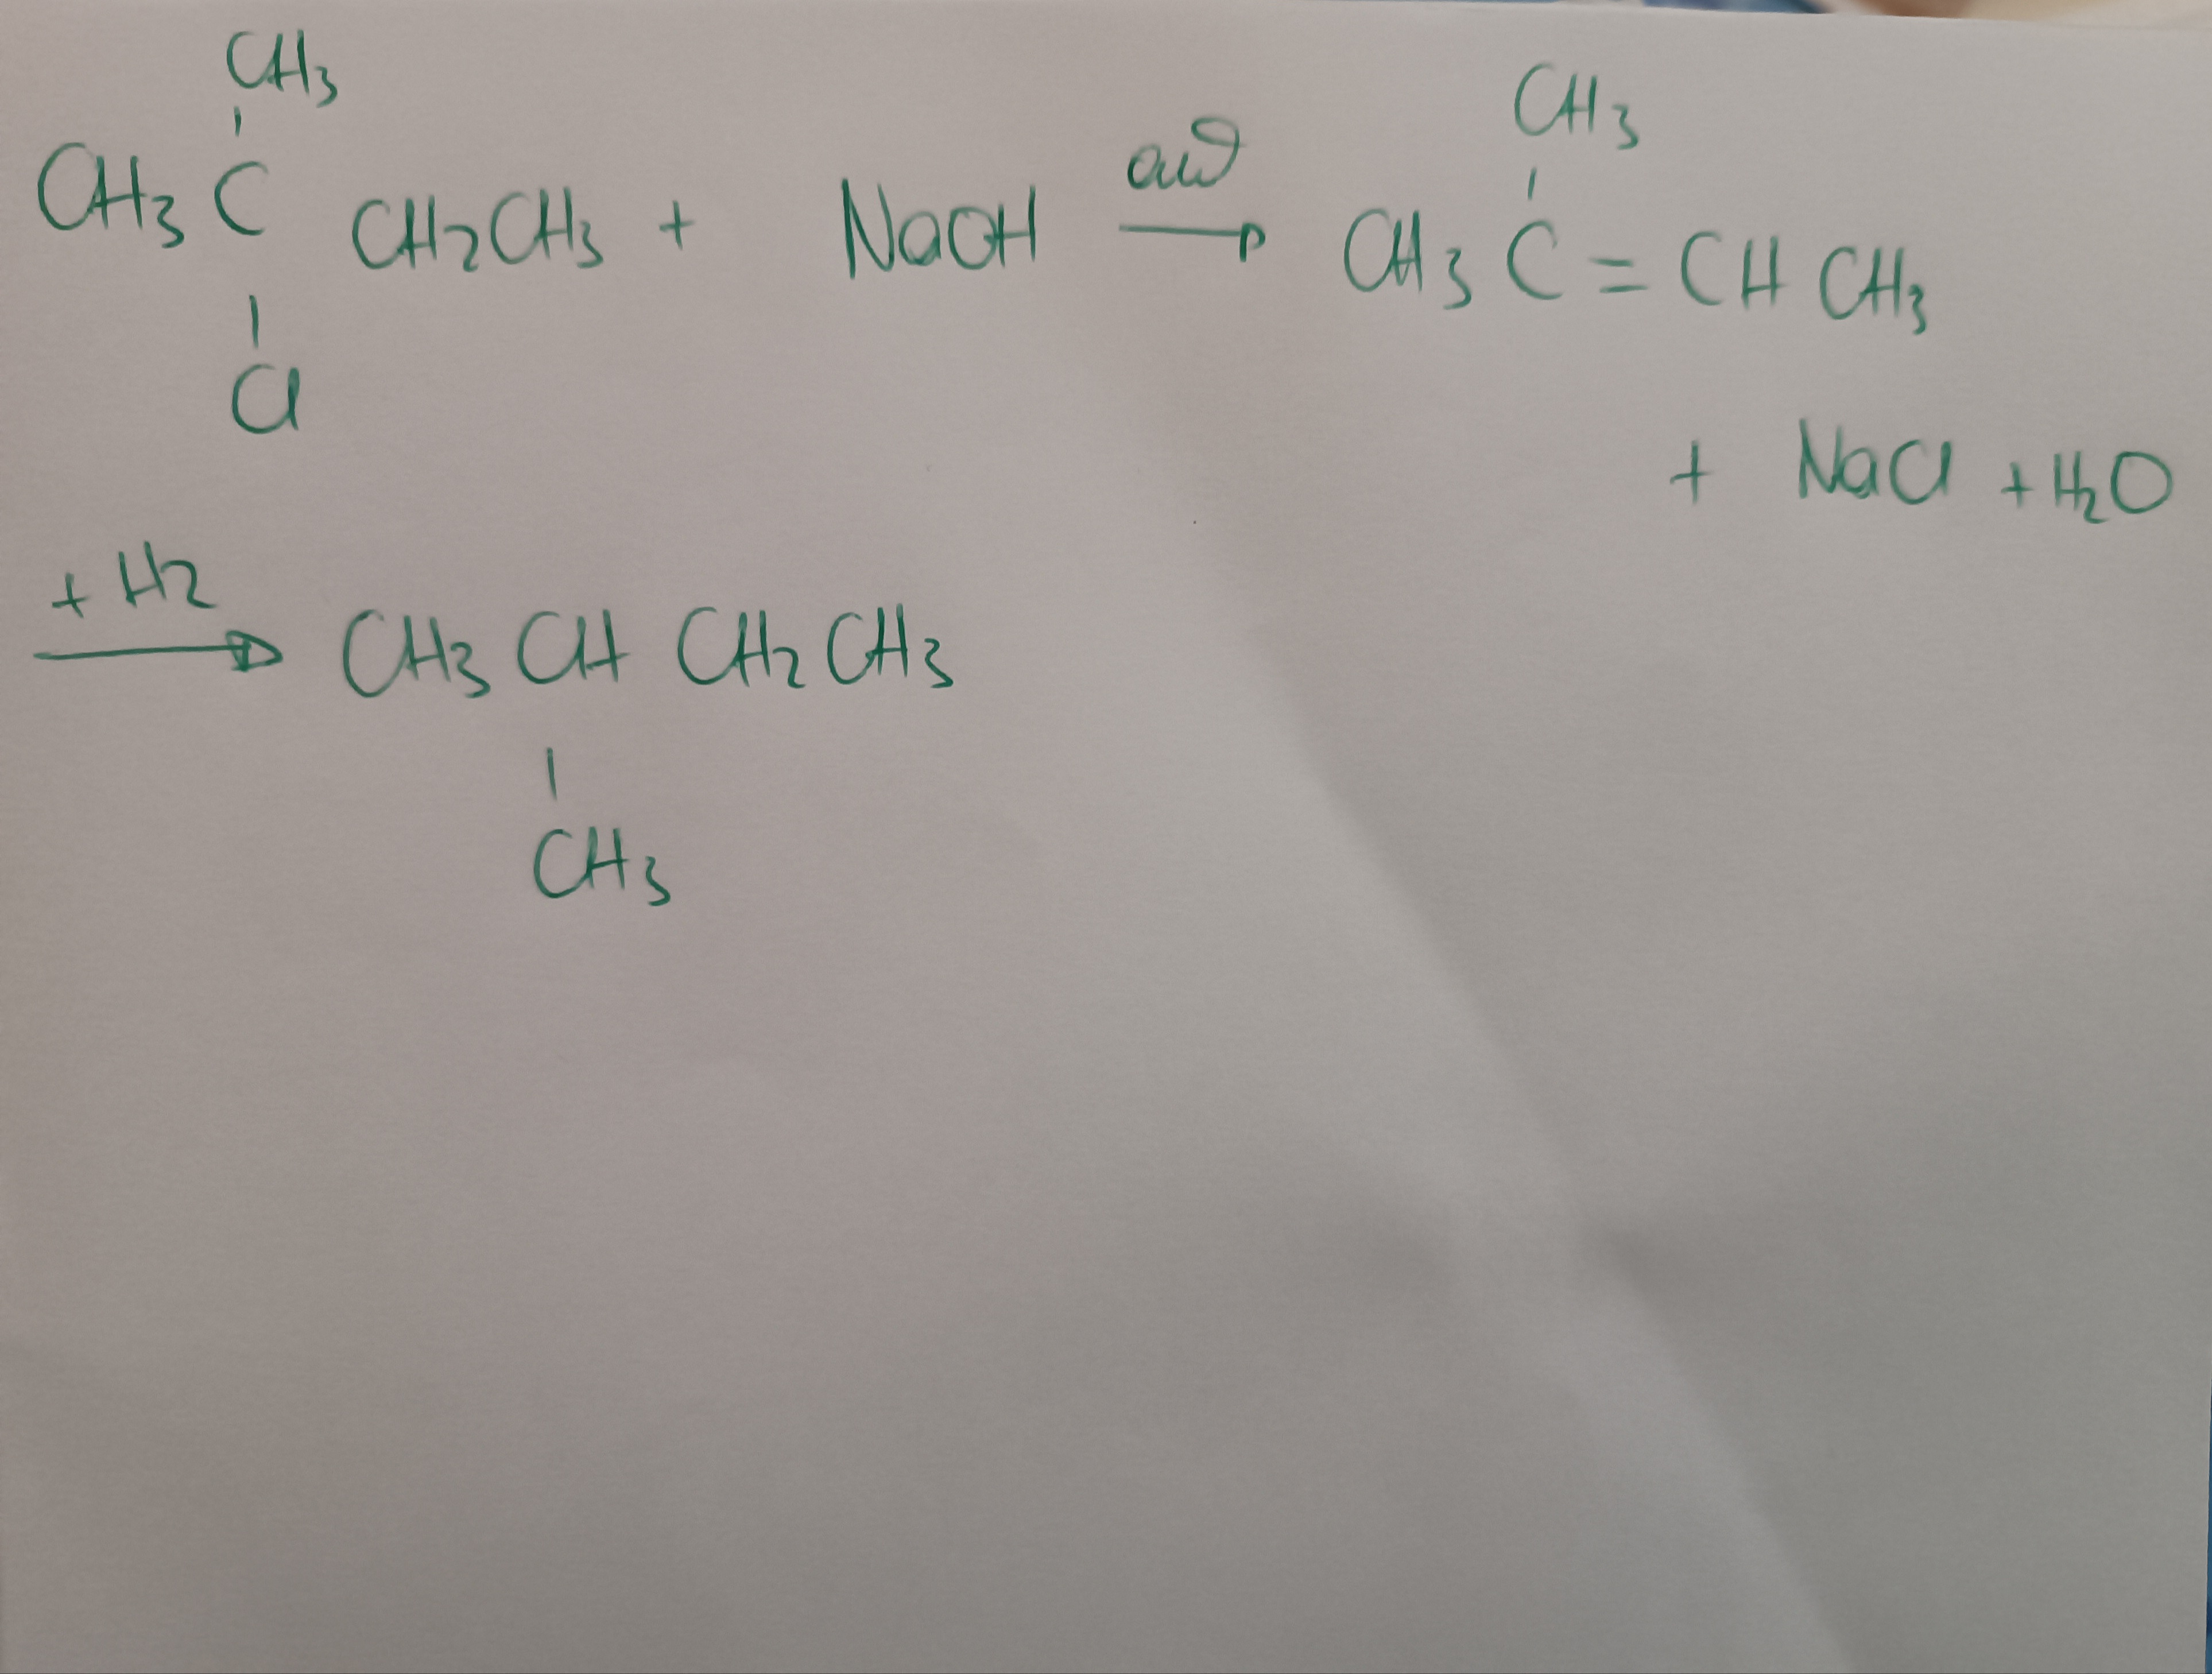 CH3
CH3
CH3 C CH2CH3 + NaOH → CH3 C = CH CH3
Cl
+ NaCl + H2O
+ H2
→ CH3 CH CH2 CH3
CH3